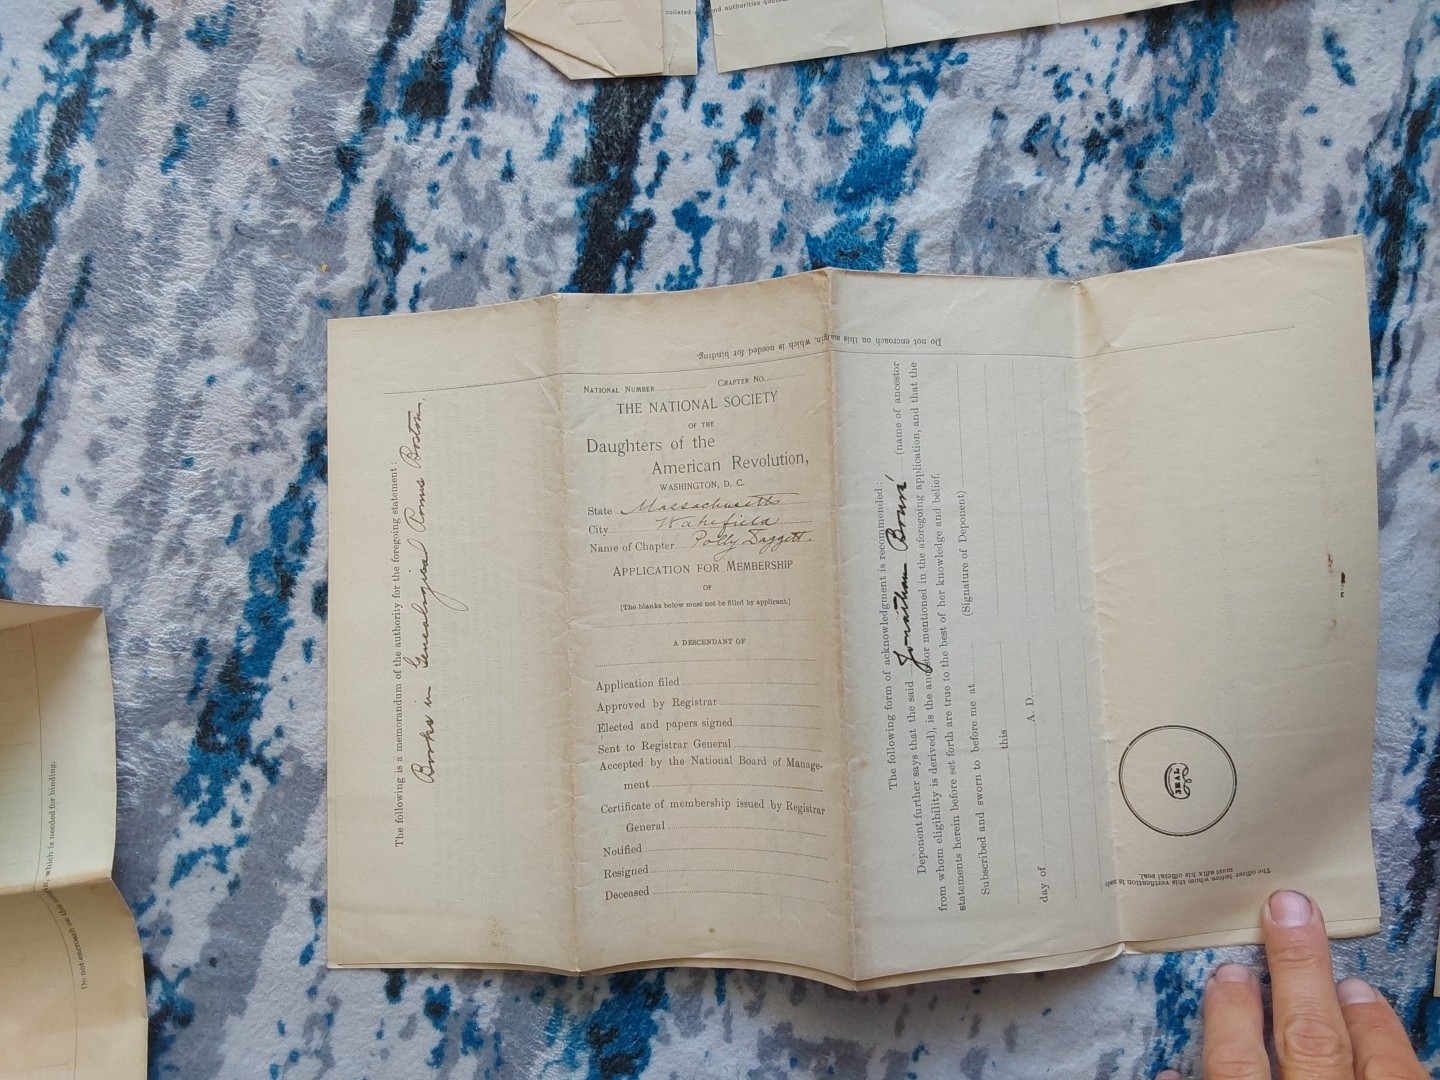 collated
and authorities quoted
Do not encroach on this margin, which is needed for binding.
The following is a memorandum of the authority for the foregoing statement:
Books in Genealogical Rooms Boston.
NATIONAL NUMBER CHAPTER NO.
THE NATIONAL SOCIETY
OF THE
Daughters of the
American Revolution,
WASHINGTON, D. C.
State Massachusetts
City Wakefield
Name of Chapter Polly Daggett.
APPLICATION FOR MEMBERSHIP
OF
[The blanks below must not be filled by applicant.]
A DESCENDANT OF
Application filed
Approved by Registrar
Elected and papers signed
Sent to Registrar General
Accepted by the National Board of Manage-
ment
Certificate of membership issued by Registrar
General
Notified
Resigned
Deceased
The following form of acknowledgment is recommended:
Deponent further says that the said Jonathan (name of ancestor
from whom eligibility is derived), is the ancestor mentioned in the aforegoing application, and that the
statements herein before set forth are true to the best of her knowledge and belief.
(Signature of Deponent)
Subscribed and sworn to before me at
this
day of A. D.
The officer before whom this verification is made
must affix his official seal.
Do not encroach on this margin, which is needed for binding.